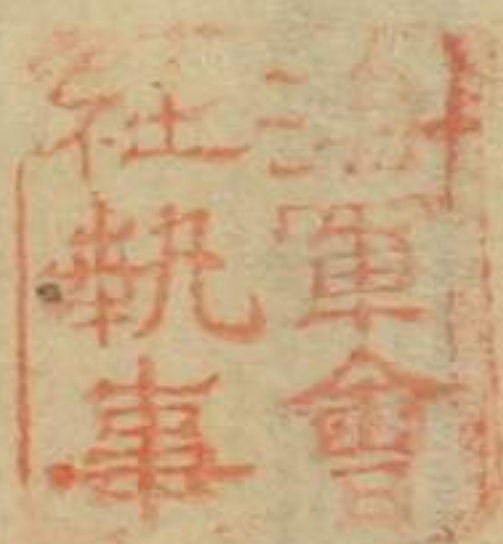 軍會
社執事